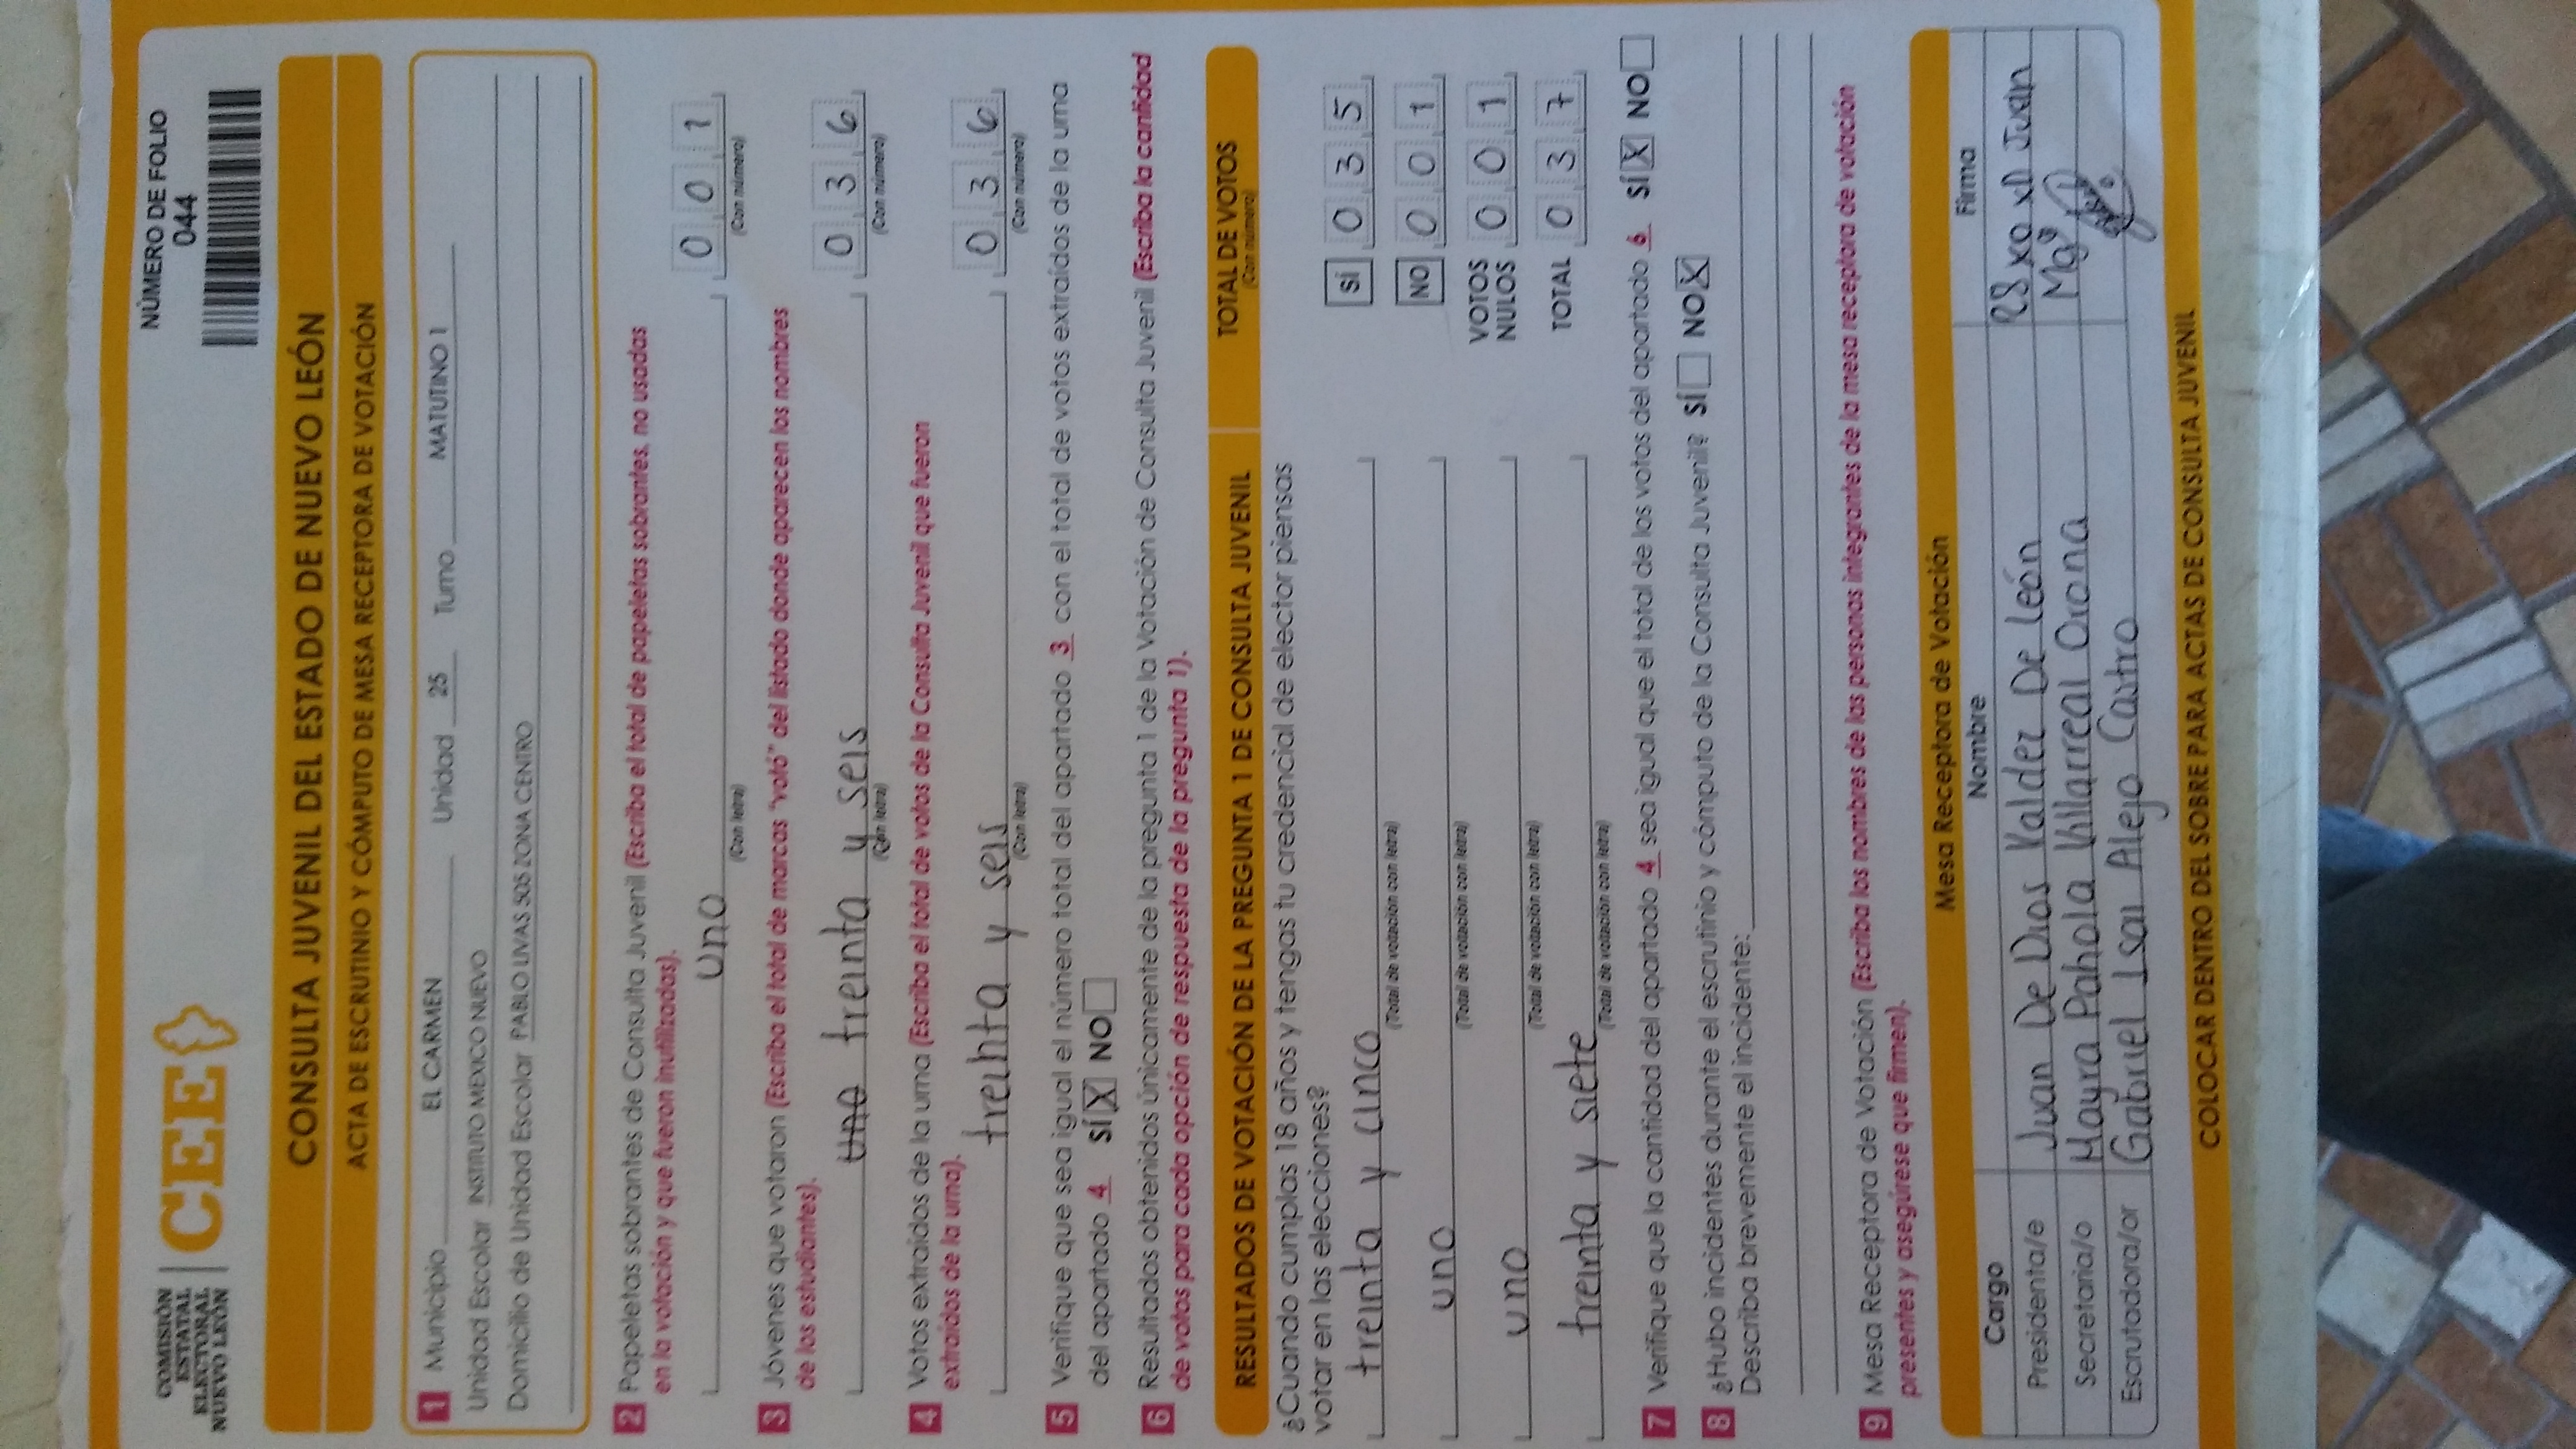 COMISIÓN
ESTATAL
ELECTORAL
NUEVO LEÓN
CEE
NÚMERO DE FOLIO
044
CONSULTA JUVENIL DEL ESTADO DE NUEVO LEÓN
ACTA DE ESCRUTINIO Y CÓMPUTO DE MESA RECEPTORA DE VOTACIÓN
1 Municipio EL CARMEN Unidad 25 Turno MATUTINO 1
Unidad Escolar INSTITUTO MEXICO NUEVO
Domicilio de Unidad Escolar PABLO LIVAS SOS ZONA CENTRO
2 Papeletas sobrantes de Consulta Juvenil (Escriba el total de papeletas sobrantes, no usadas
en la votación y que fueron inutilizadas).
uno 0 0 1
(Con letra) (Con número)
3 Jóvenes que votaron (Escriba el total de marcas "votó" del listado donde aparecen los nombres
de los estudiantes).
uno treinta y seis 0 3 6
(Con letra) (Con número)
4 Votos extraídos de la urna (Escriba el total de votos de la Consulta Juvenil que fueron
extraídos de la urna).
treinta y seis 0 3 6
(Con letra) (Con número)
5 Verifique que sea igual el número total del apartado 3 con el total de votos extraídos de la urna
del apartado 4 SÍ X NO
6 Resultados obtenidos únicamente de la pregunta 1 de la Votación de Consulta Juvenil (Escriba la cantidad
de votos para cada opción de respuesta de la pregunta 1).
RESULTADOS DE VOTACIÓN DE LA PREGUNTA 1 DE CONSULTA JUVENIL TOTAL DE VOTOS
(Con número)
¿Cuando cumplas 18 años y tengas tu credencial de elector piensas
votar en las elecciones?
treinta y cinco SÍ 0 3 5
(Total de votación con letra)
uno NO 0 0 1
(Total de votación con letra)
uno VOTOS NULOS 0 0 1
(Total de votación con letra)
treinta y siete TOTAL 0 3 7
(Total de votación con letra)
7 Verifique que la cantidad del apartado 4 sea igual que el total de los votos del apartado 6 SÍ X NO
8 ¿Hubo incidentes durante el escrutinio y cómputo de la Consulta Juvenil? SÍ NO X
Describa brevemente el incidente:
9 Mesa Receptora de Votación (Escriba los nombres de las personas integrantes de la mesa receptora de votación
presentes y asegúrese que firmen).
Mesa Receptora de Votación
Cargo Nombre Firma
Presidenta/e Juan De Dios Valdez De león Juan
Secretaria/o Mayra Pahola Villarreal Orona
Escrutadora/or Gabriel Isai Alejo Castro
COLOCAR DENTRO DEL SOBRE PARA ACTAS DE CONSULTA JUVENIL